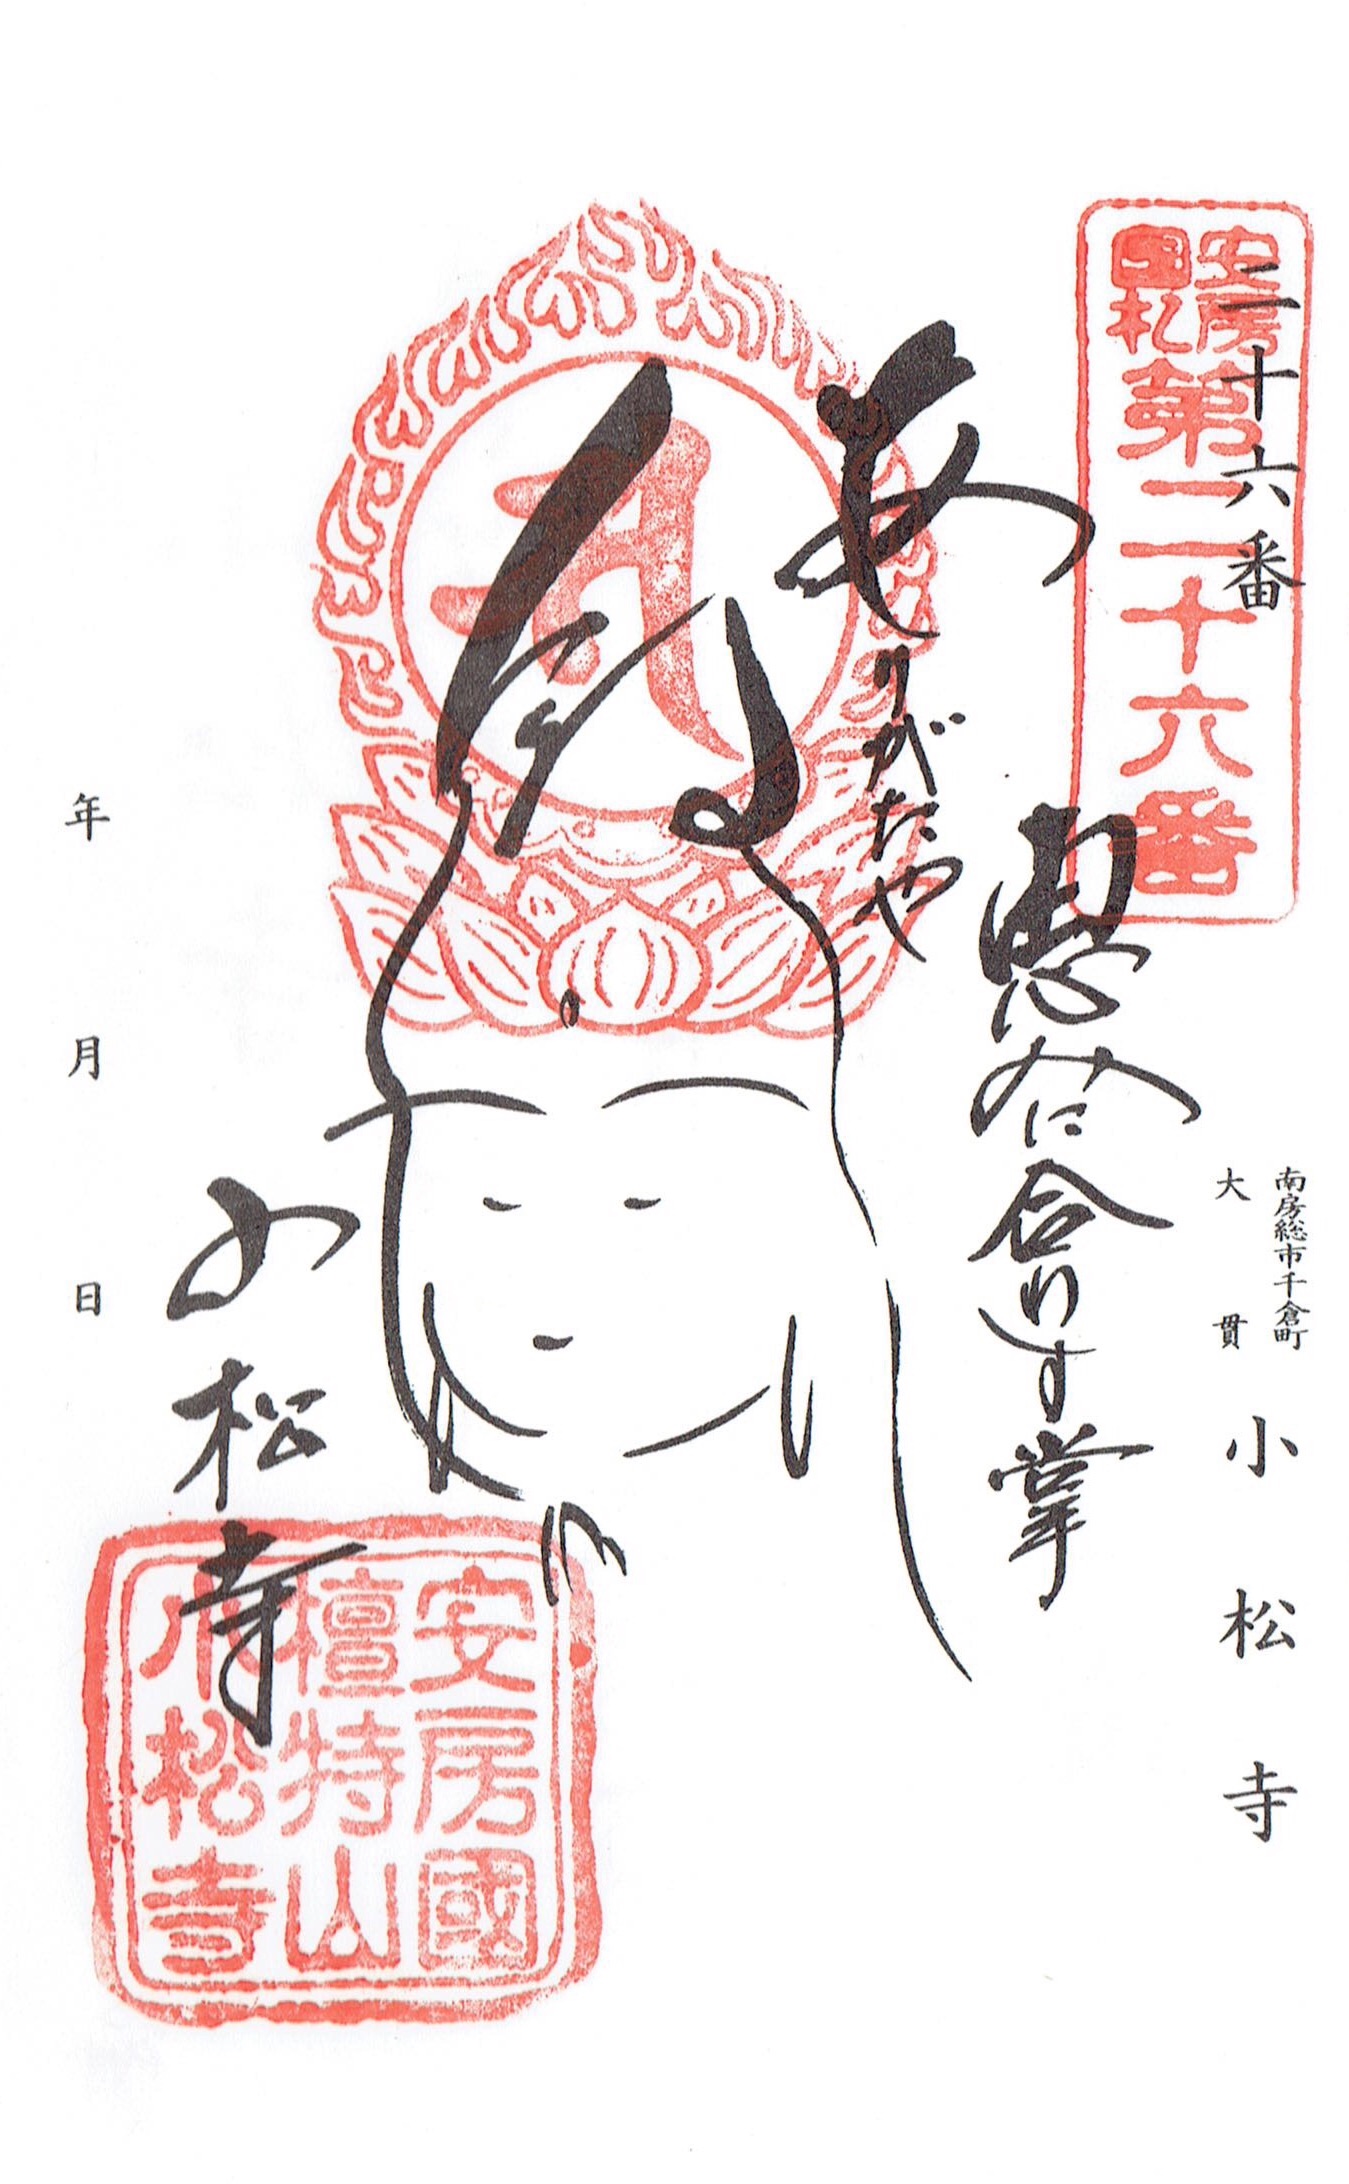 二十六番
南房総市千倉町
大貫
小松寺
安房
国札
第二十六番
合わす掌
ありがたや
小松寺
安房國
檀特山
小松寺
年月日